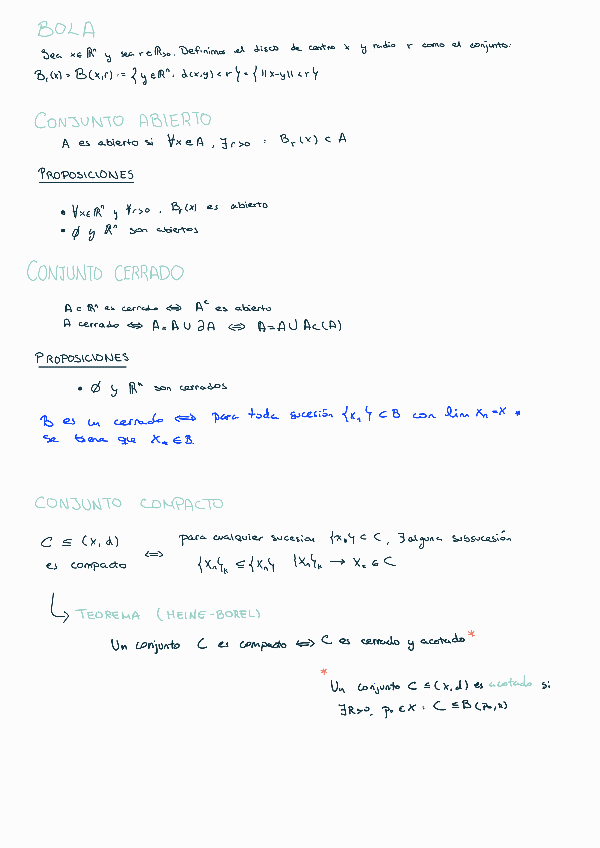 BOLA
Sea x∈ℝⁿ y sea r∈ℝ>0. Definimos el disco de centro x y radio r como el conjunto:
Bᵣ(x) = B(x,r) := { y∈ℝⁿ. d(x,y) < r } = { ||x-y|| < r }
CONJUNTO ABIERTO
A es abierto si ∀x∈A, ∃r>0 : Bᵣ(x) ⊂ A
PROPOSICIONES
• ∀x∈ℝⁿ y ∀r>0, Bᵣ(x) es abierto
• ∅ y ℝⁿ son abiertos
CONJUNTO CERRADO
A⊂ℝⁿ es cerrado ⟺ Aᶜ es abierto
A cerrado ⟺ A=A∪∂A ⟺ A=A∪Ac(A)
PROPOSICIONES
• ∅ y ℝⁿ son cerrados
B es un cerrado ⟺ para toda sucesión {xₙ} ⊂ B con lim xₙ=x*
se tiene que x* ∈ B.
CONJUNTO COMPACTO
C ⊆ (x,d) es compacto ⟺ para cualquier sucesion {xₙ} ⊂ C, ∃ alguna subsucesión
{xₙ}ₖ ⊆ {xₙ} {xₙ}ₖ → x* ∈ C
TEOREMA (HEINE-BOREL)
Un conjunto C es compacto ⟺ C es cerrado y acotado*
* Un conjunto C ⊆ (x,d) es acotado si
∃R>0, p₀ ∈ X : C ⊆ B(p₀,R)